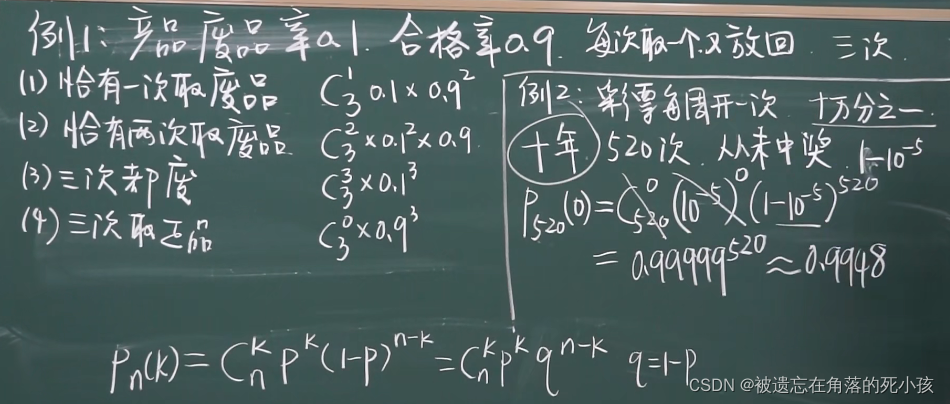 例1: 产品废品率0.1. 合格率0.9. 每次取一个又放回. 三次.
(1) 恰有一次取废品 C₃¹ 0.1 × 0.9²
(2) 恰有两次取废品. C₃² × 0.1² × 0.9.
(3) 三次都废 C₃³ × 0.1³
(4) 三次取正品 C₃⁰ × 0.9³
例2: 彩票每周开一次 十万分之一.
十年 520次. 从未中奖. 1-10⁻⁵
P₅₂₀(0) = C₅₂₀⁰ (10⁻⁵)⁰ (1-10⁻⁵)⁵²⁰
= 0.99999⁵²⁰ ≈ 0.9948
Pₙ(k) = Cₙᵏ pᵏ (1-p)ⁿ⁻ᵏ = Cₙᵏ pᵏ qⁿ⁻ᵏ q=1-p
CSDN @被遗忘在角落的死小孩